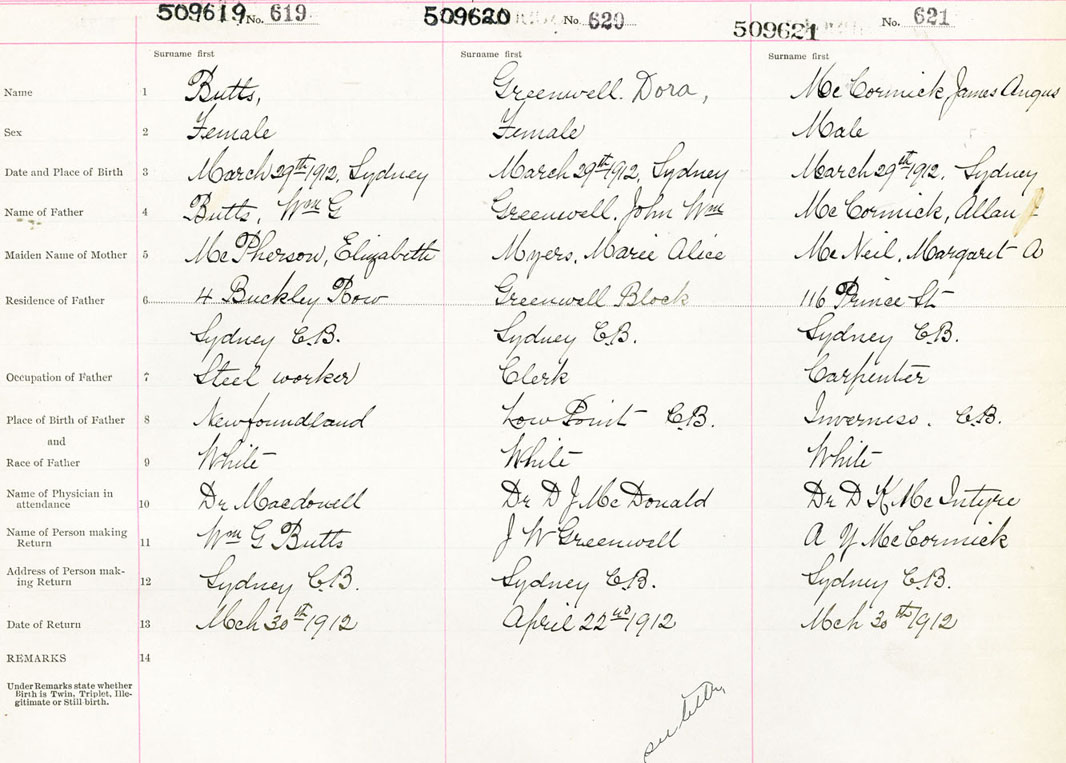 509619 No. 619 509620 No. 620 509621 No. 621
Surname first Surname first Surname first
Name 1 Butts, Greenwell. Dora, Mc Cormick, James Angus
Sex 2 Female Female Male
Date and Place of Birth 3 March 29th 1912, Sydney March 29th 1912, Sydney March 29th 1912, Sydney
Name of Father 4 Butts, Wm G Greenwell, John Wm Mc Cormick, Allan J
Maiden Name of Mother 5 Mc Pherson, Elizabeth Myers, Marie Alice Mc Neil, Margaret A
Residence of Father 6 4 Buckley Row Greenwell Block 116 Prince St
Sydney C.B. Sydney C.B. Sydney C.B.
Occupation of Father 7 Steel worker Clerk Carpenter
Place of Birth of Father 8 Newfoundland Low Point C.B. Inverness. C.B.
and
Race of Father 9 White White White
Name of Physician in
attendance 10 Dr Macdowell Dr D J Mc Donald Dr D K Mc Intyre
Name of Person making
Return 11 Wm G Butts J W Greenwell A Y Mc Cormick
Address of Person mak-
ing Return 12 Sydney C.B. Sydney C.B. Sydney C.B.
Date of Return 13 Mch 30th 1912 April 22nd 1912 Mch 30th 1912
REMARKS 14
Under Remarks state whether
Birth is Twin, Triplet, Ille-
gitimate or Still-birth.
see letter